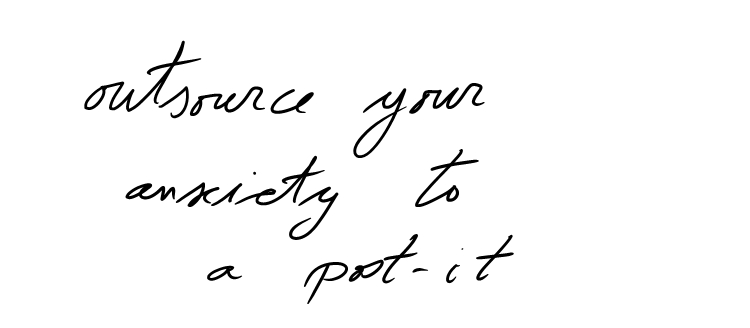 outsource your
anxiety to
a post-it